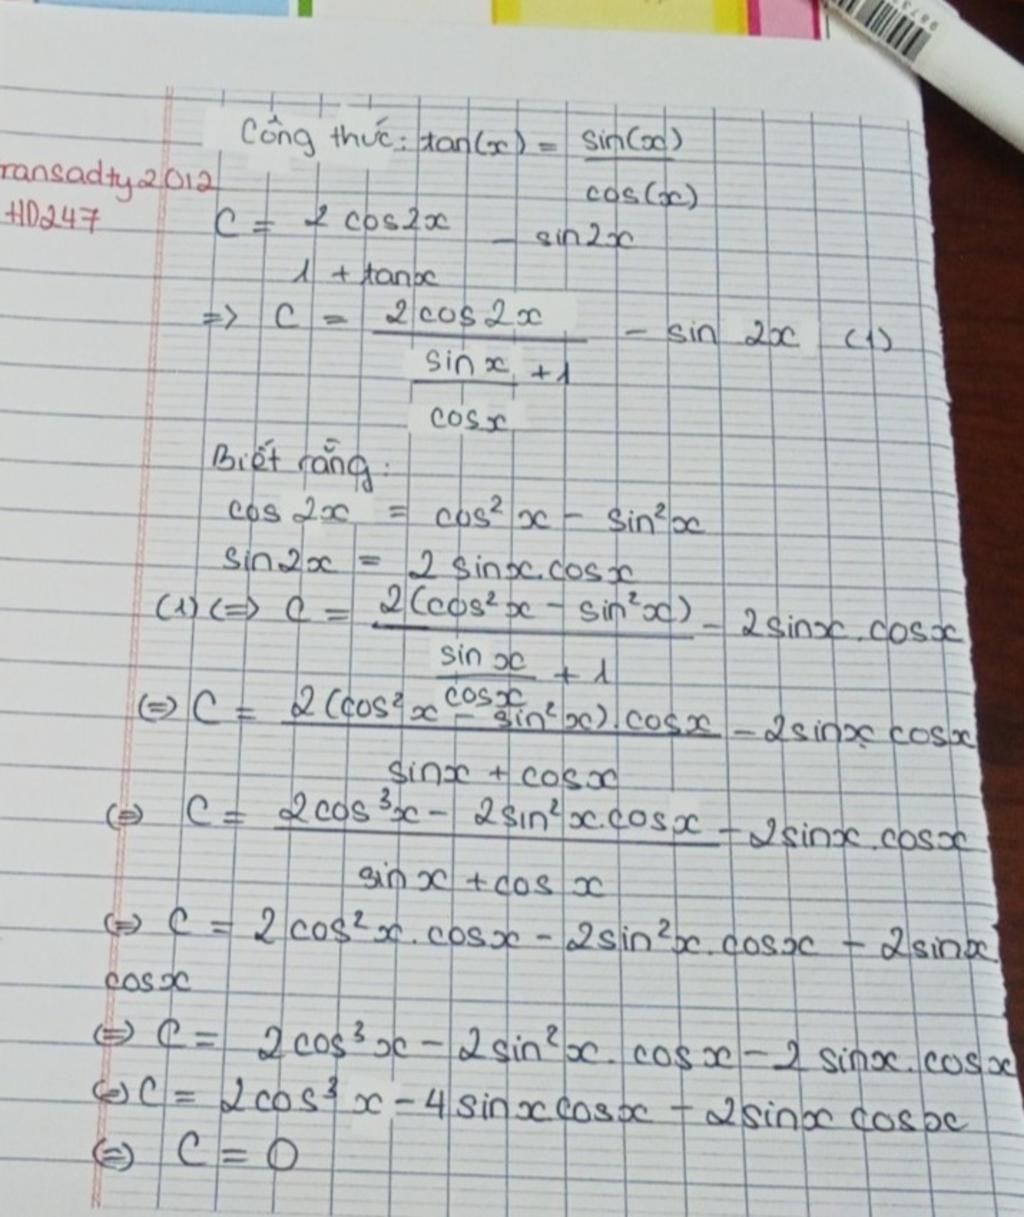 Công thức: tan(x) = sin(x)
cos(x)
ransadty2012
HD247
C = 2 cos2x - sin2x
1 + tanx
=> C = 2cos 2x - sin 2x (1)
sin x + 1
cos x
Biết rằng:
cos 2x = cos² x - sin²x
sin2x = 2 sinx.cosx
(1) <=> C = 2(cos²x - sin²x) - 2sinx.cosx
sin x + 1
cosx
<=> C = 2(cos²x - sin²x).cosx - 2sinx cosx
sinx + cosx
<=> C = 2cos³x - 2sin²x.cosx - 2sinx.cosx
sin x + cos x
<=> C = 2cos²x.cosx - 2sin²x.cosx - 2sinx
cosx
<=> C = 2cos³x - 2sin²x.cosx - 2 sinx.cosx
<=> C = 2cos³ x - 4sinxcosx - 2sinx cosx
<=> C = 0